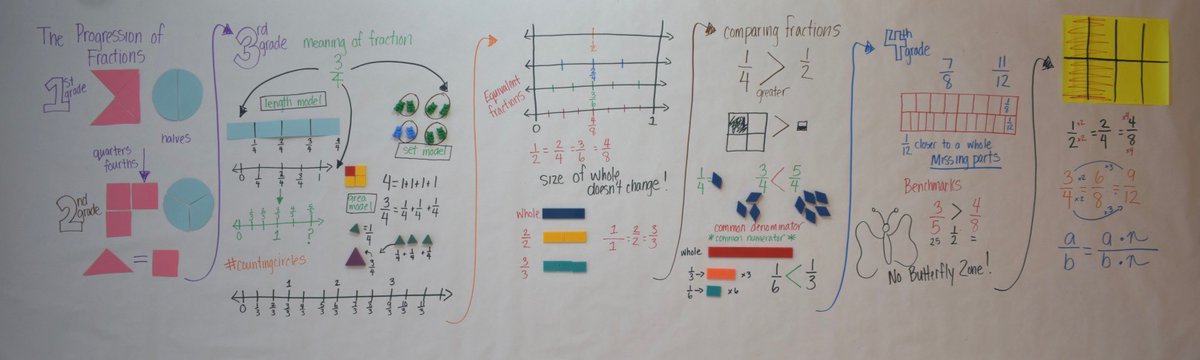 The Progression of
Fractions
1st
grade
halves
quarters
fourths
2nd
grade
=
3rd
grade
meaning of fraction
3/4
length model
1/4 2/4 3/4 4/4
set model
0 1/4 2/4 3/4 1
area
model
4=1+1+1+1
3/4=1/4+1/4+1/4
=1/4
3/4
1/4+1/4+1/4
0 1/4 2/4 3/4 4/4 5/4
1 ?
#countingcircles
1 2 3
0 1/3 2/3 3/3 4/3 5/3 6/3 7/3 8/3 9/3 10/3 11/3
Equivalent
fractions
1/2
2/4
3/6
4/8
0 1
1/2=2/4=3/6=4/8
size of whole
doesn't change!
whole
2/2
3/3
1/1=2/2=3/3
comparing fractions
1/4 > 1/2
greater
>
1/4=
3/4 < 5/4
common denominator
*common numerator*
whole
1/3→ x3
1/6→ x6
1/6 < 1/3
4th
grade
7/8 11/12
1/8
1/12
1/12 closer to a whole
Missing parts
Benchmarks
3/5 > 4/8
25 1/2 =
No Butterfly Zone!
1/2 x2 x2 = 2/4 = x4 4/8 x4
3/4 x2 x2 = 6/8 = 9/12
x3
x3
a/b = a•n/b•n